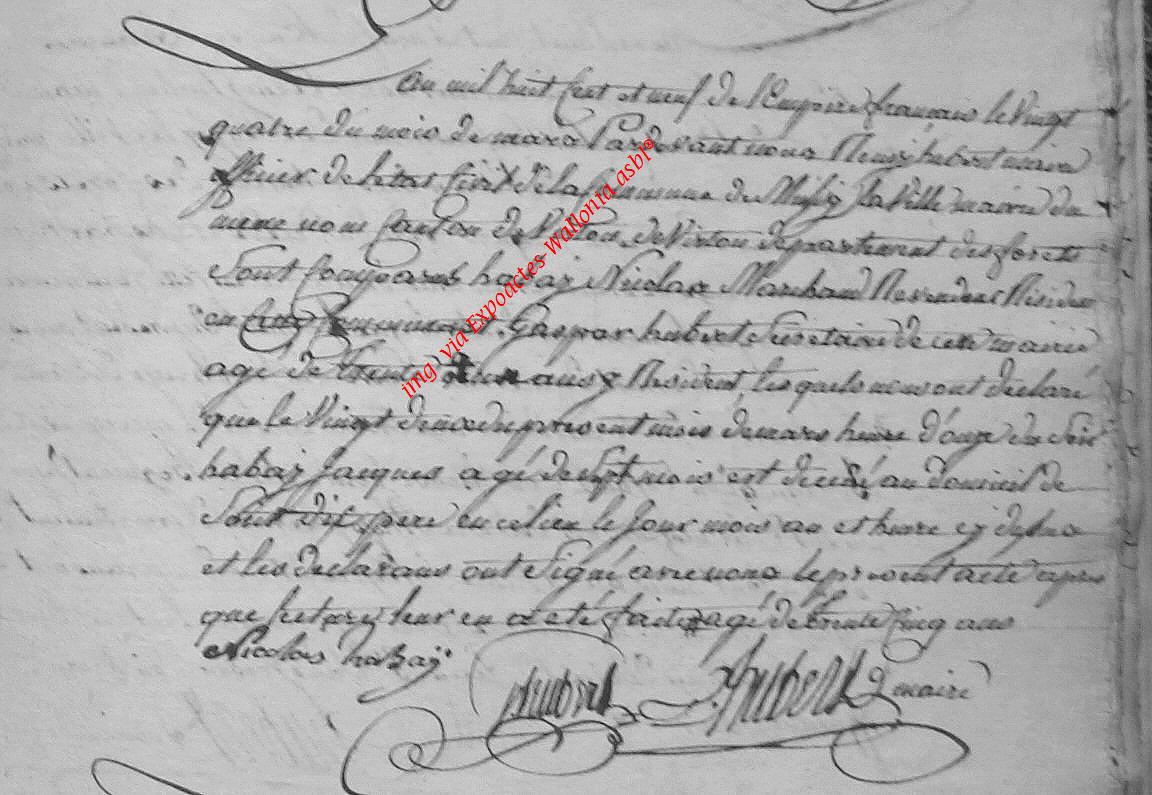 An mil huit cent et neuf de l'Empire français le vingt
quatre du mois de mars Pardevant nous Remy hubert maire
officier de l'etat Civil de la Commune de Mussy la Ville mairie du
meme nom Canton de Virton, departement des forets
Sont Comparus habay Nicolas Marchand Revendeur Resident
en cette Commune et Gaspar hubert Secretaire de cette mairie
agé de trente ans y Resident, les quels nous ont declaré
que le Vingt deux du present mois de mars heure d'onze du Soir
habay Jacques agé de Sept mois est decedé au domicil de
Sont dit pere en ce lieu le Jour mois an et heure cy dessus
et les declarans ont Signé avec nous le present acte apres
que lecture leur en a eté faite agé de trente Cinq ans
Nicolas habay
hubert hubert maire
img via Expoactes-Wallonia asbl®